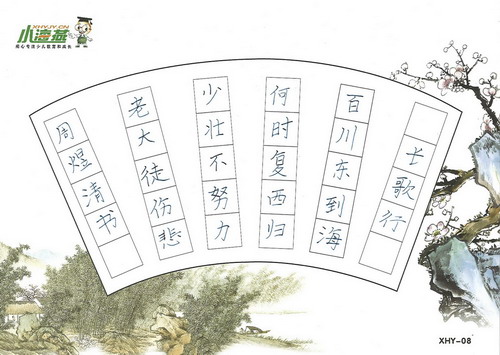 XHYJY.CN
小海燕
用心专注少儿教育和成长
长歌行
百川东到海
何时复西归
少壮不努力
老大徒伤悲
周煜清书
XHY-08